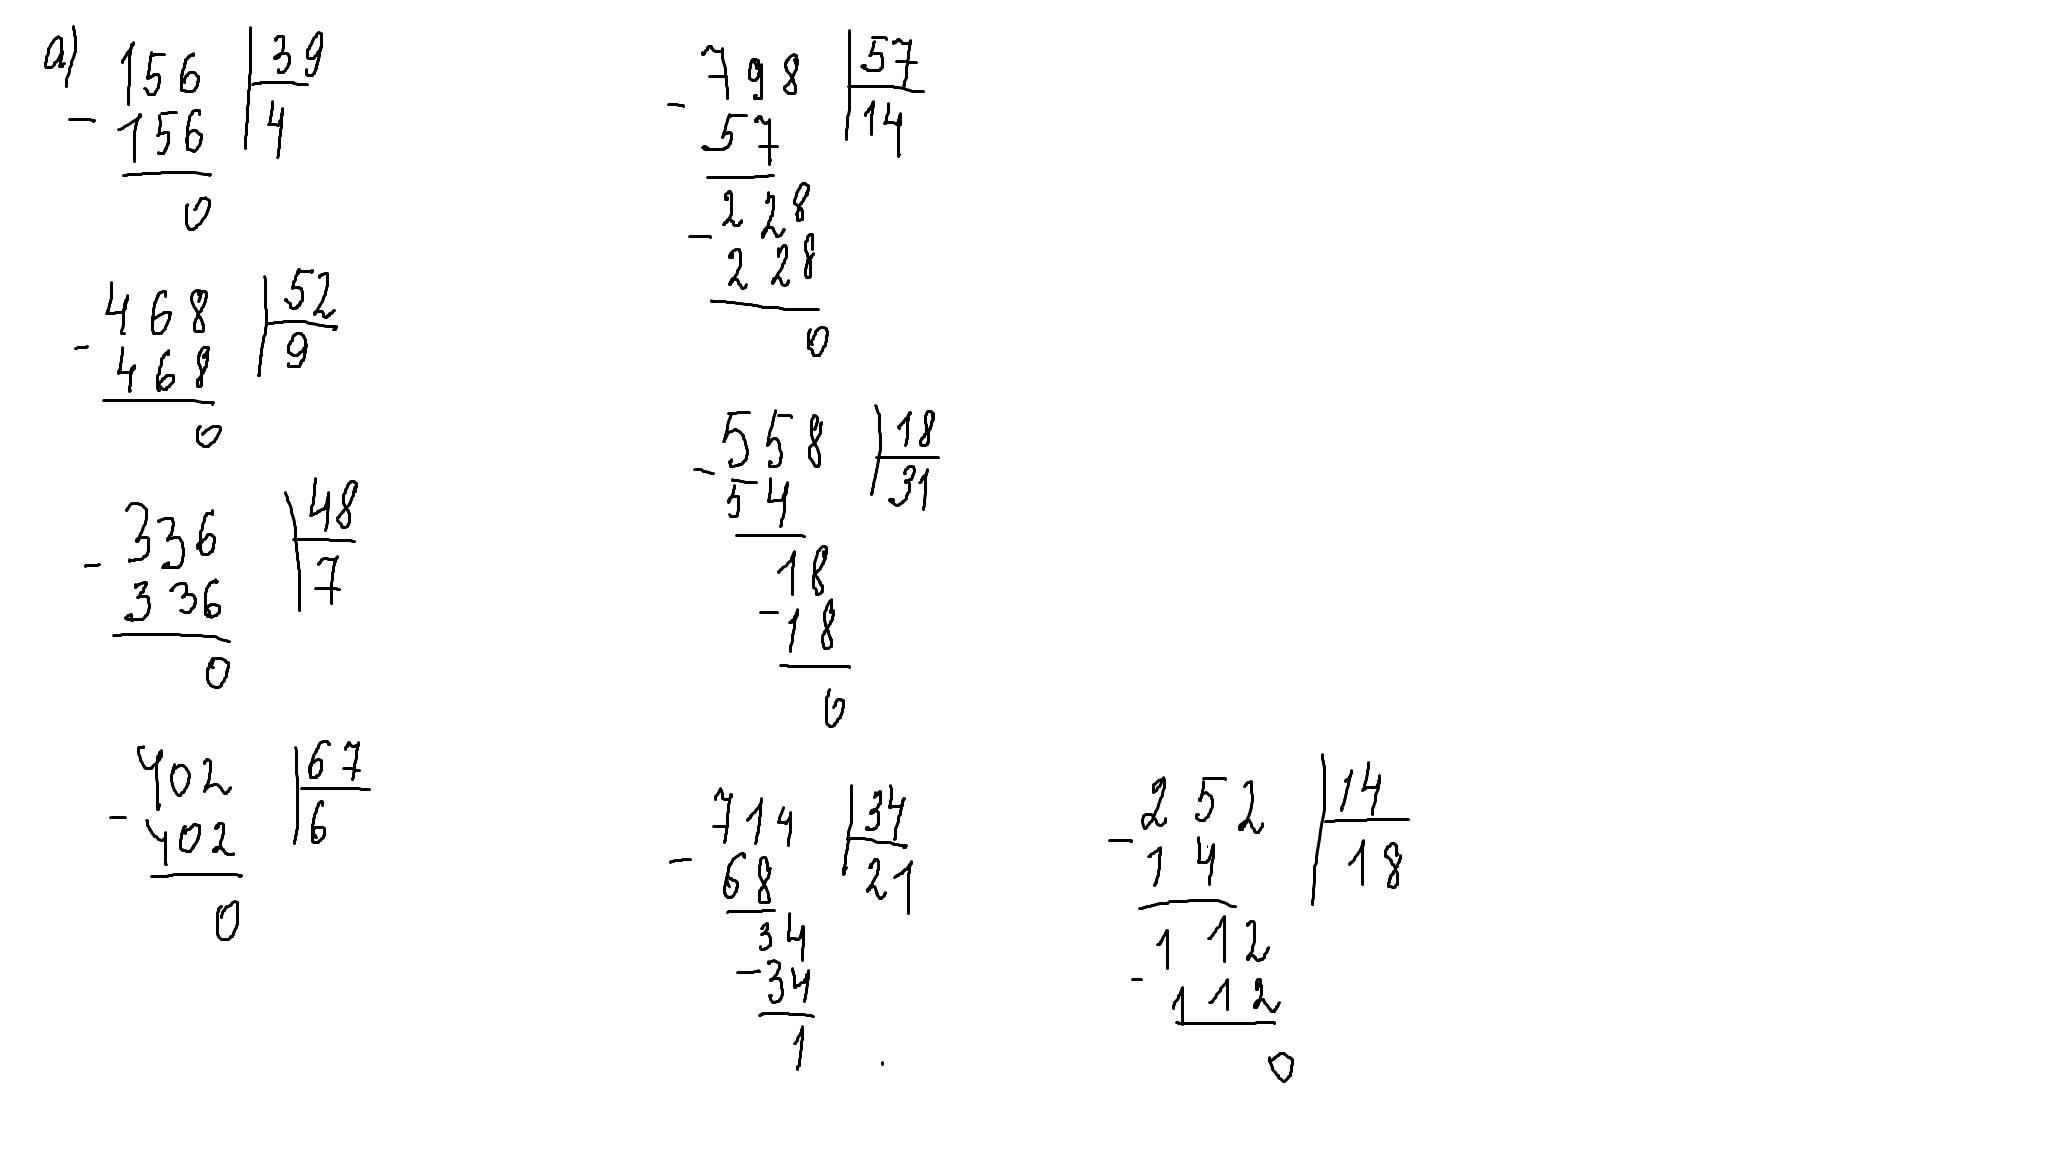 а)
156 39
- 156 4
0
468 52
- 468 9
0
336 48
- 336 7
0
402 67
- 402 6
0
798 57
- 57 14
228
- 228
0
558 18
- 54 31
18
- 18
0
714 34
- 68 21
34
- 34
1
252 14
- 14 18
112
- 112
0